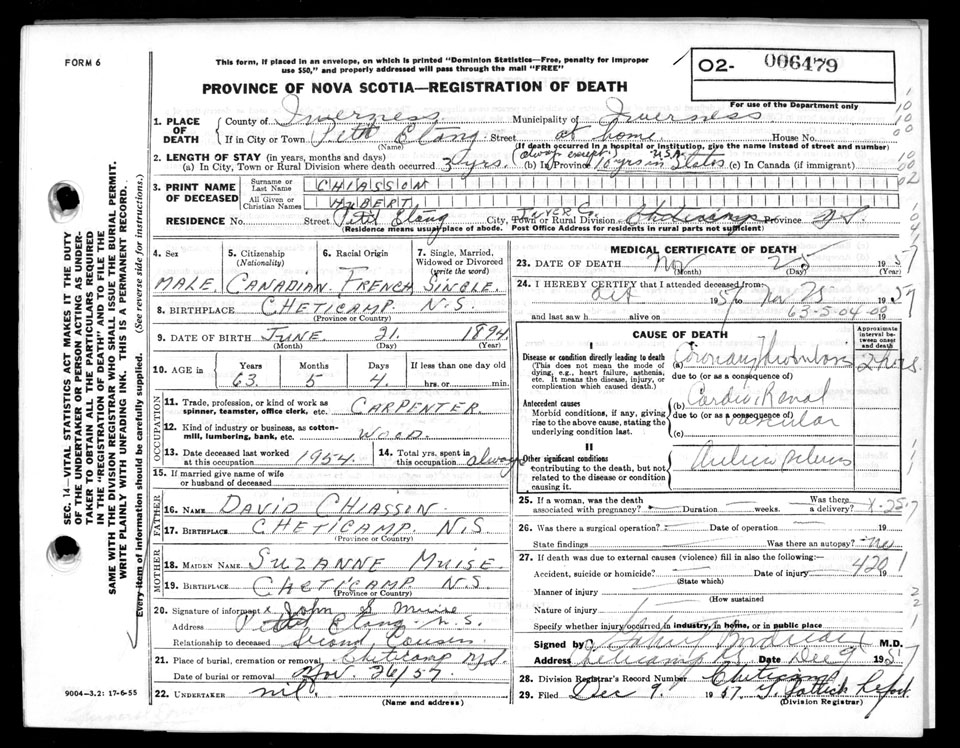 FORM 6
This form, if placed in an envelope, on which is printed "Dominion Statistics—Free, penalty for improper
use $50," and properly addressed will pass through the mail "FREE"
O2- 006479
For use of the Department only
PROVINCE OF NOVA SCOTIA—REGISTRATION OF DEATH
1. PLACE OF DEATH
County of Inverness Municipality of Inverness
If in City or Town Petit Etang Street at home House No.
(Name) (If death occurred in a hospital or institution, give the name instead of street and number)
2. LENGTH OF STAY (in years, months and days) (always except) U.S.A.
(a) In City, Town or Rural Division where death occurred 3 yrs. (b) In Province 10 yrs in States (c) In Canada (if immigrant)
3. PRINT NAME OF DECEASED
Surname or Last Name CHIASSON
All Given or Christian Names HUBERT
RESIDENCE No. Street Petit Etang City, Town or Rural Division Inver Co. Cheticamp Province N.S.
(Residence means usual place of abode. Post Office Address for residents in rural parts not sufficient)
4. Sex
MALE
5. Citizenship (Nationality)
CANADIAN
6. Racial Origin
FRENCH
7. Single, Married, Widowed or Divorced (write the word)
SINGLE
8. BIRTHPLACE CHETICAMP N.S.
(Province or Country)
9. DATE OF BIRTH JUNE 21 1894
(Month) (Day) (Year)
10. AGE in Years Months Days If less than one day old
63 5 4 hrs. or min.
OCCUPATION
11. Trade, profession, or kind of work as spinner, teamster, office clerk, etc. CARPENTER
12. Kind of industry or business, as cotton-mill, lumbering, bank, etc. WOOD
13. Date deceased last worked at this occupation 1954 14. Total yrs. spent in this occupation always
15. If married give name of wife or husband of deceased
FATHER
16. NAME DAVID CHIASSON
17. BIRTHPLACE CHETICAMP N.S.
(Province or Country)
MOTHER
18. MAIDEN NAME SUZANNE MUISE
19. BIRTHPLACE CHETICAMP N.S.
(Province or Country)
20. Signature of informant x John S Muise
Address Petit Etang N.S.
Relationship to deceased Second Cousin
21. Place of burial, cremation or removal Cheticamp N.S.
Date of burial or removal Nov 26/57
22. UNDERTAKER nil
(Name and address)
MEDICAL CERTIFICATE OF DEATH
23. DATE OF DEATH Nov 25 1957
(Month) (Day) (Year)
24. I HEREBY CERTIFY that I attended deceased from
1957 Nov 25 1957
and last saw h alive on 19
63-5-04-00
CAUSE OF DEATH
Approximate interval between onset and death
I
Disease or condition directly leading to death (a) Coronary Thrombosis 2 hrs.
(This does not mean the mode of dying, e.g., heart failure, asthenia, etc. It means the disease, injury, or complication which caused death.)
due to (or as a consequence of)
Antecedent causes (b) Cardio Renal
Morbid conditions, if any, giving rise to the above cause, stating the underlying condition last.
due to (or as a consequence of)
vascular
(c)
II
Other significant conditions
contributing to the death, but not related to the disease or condition causing it.
25. If a woman, was the death associated with pregnancy? Duration weeks. Was there a delivery?
26. Was there a surgical operation? Date of operation 19
State findings Was there an autopsy? no
27. If death was due to external causes (violence) fill in also the following:—
Accident, suicide or homicide? Date of injury 19
(State which)
4201
Manner of injury
(How sustained
Nature of injury
Specify whether injury occurred in industry, in home, or in public place
Signed by M.D.
Address Cheticamp Date Dec 9 1957
28. Division Registrar's Record Number Cheticamp
29. Filed Dec 9. 1957
(Division Registrar)
SEC. 14—VITAL STATISTICS ACT MAKES IT THE DUTY
OF THE UNDERTAKER OR PERSON ACTING AS UNDER-
TAKER TO OBTAIN ALL THE PARTICULARS REQUIRED
IN THE "REGISTRATION OF DEATH" AND TO FILE THE
SAME WITH THE DIVISION REGISTRAR WHO SHALL ISSUE THE BURIAL PERMIT.
WRITE PLAINLY WITH UNFADING INK. THIS IS A PERMANENT RECORD.
Every item of information should be carefully supplied. (See reverse side for instructions.)
9004—3.2: 17-6-55